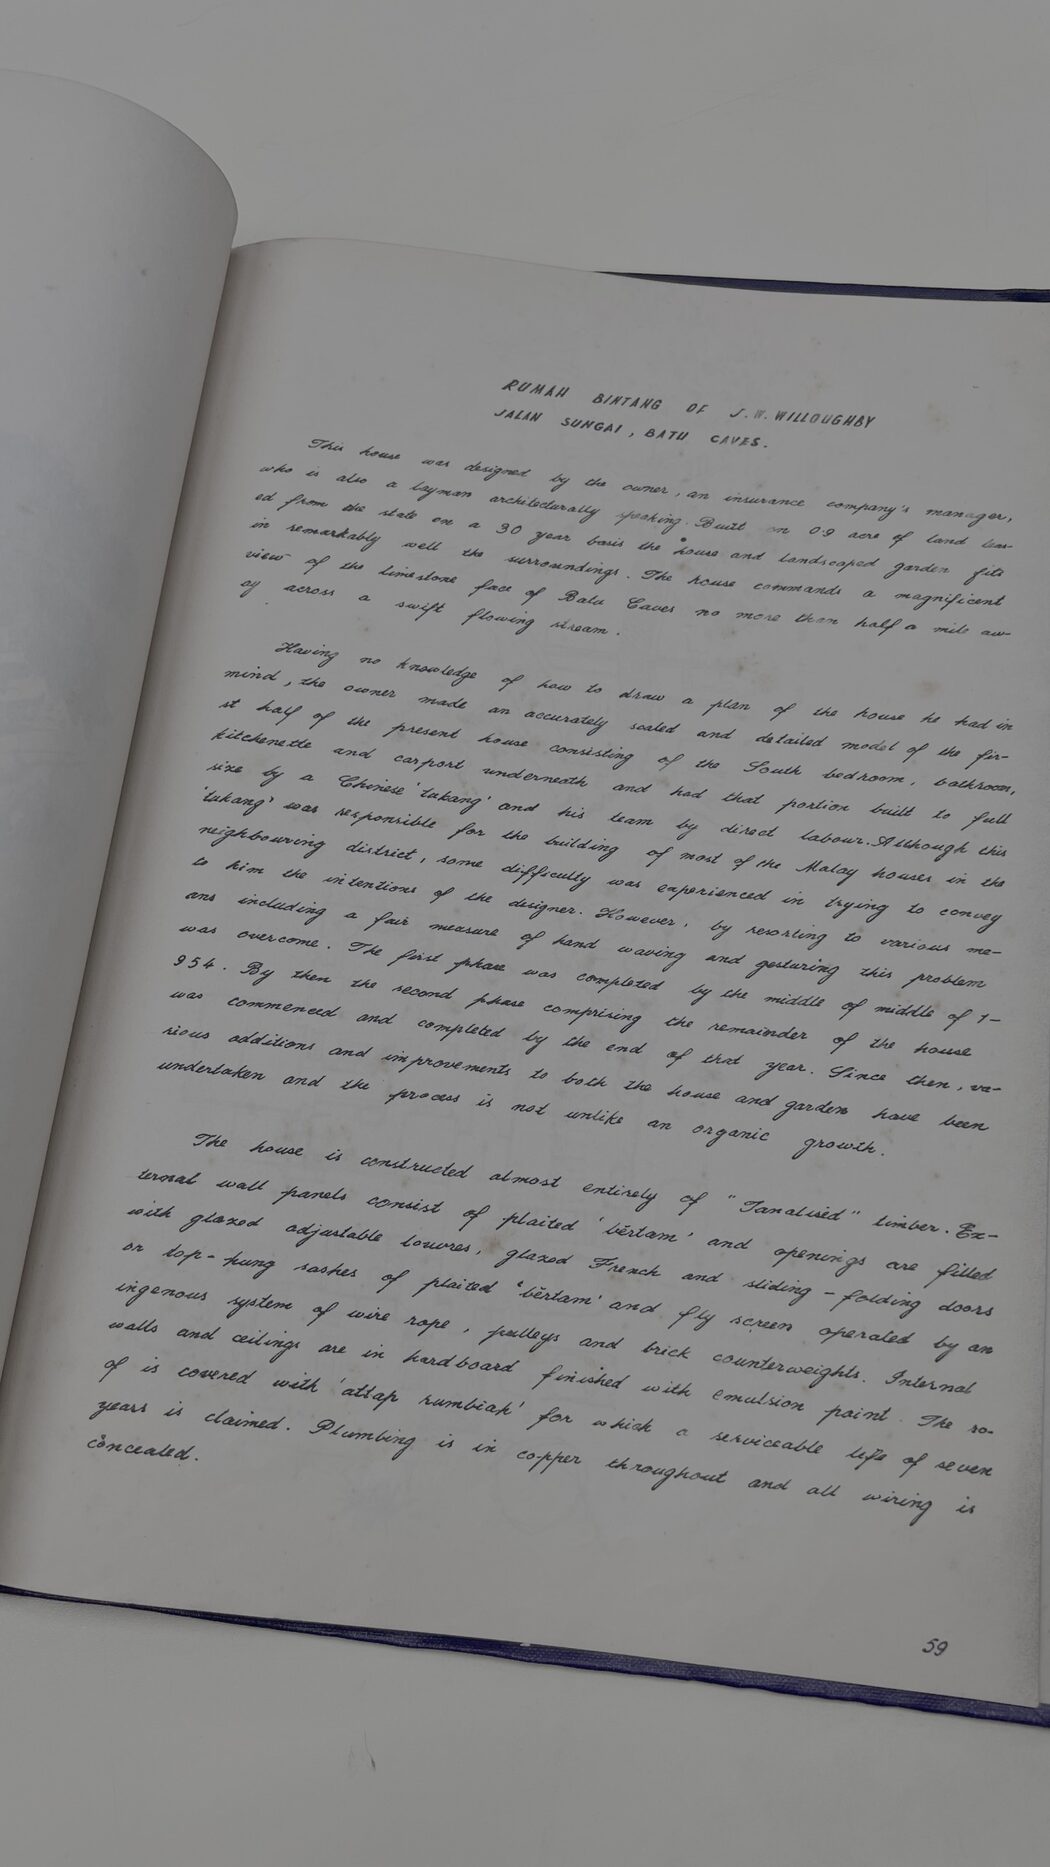 RUMAH BINTANG OF J.W. WILLOUGHBY
JALAN SUNGAI, BATU CAVES.
This house was designed by the owner, an insurance company's manager,
who is also a layman architecturally speaking. Built on 0.9 acre of land leas-
ed from the state on a 30 year basis the house and landscaped garden fits
in remarkably well the surroundings. The house commands a magnificent
view of the limestone face of Batu Caves no more than half a mile aw-
ay across a swift flowing stream.
Having no knowledge of how to draw a plan of the house he had in
mind, the owner made an accurately scaled and detailed model of the fir-
st half of the present house consisting of the South bedroom, bathroom,
kitchenette and carport underneath and had that portion built to full
size by a Chinese 'tukang' and his team by direct labour. Although this
'tukang' was responsible for the building of most of the Malay houses in the
neighbouring district, some difficulty was experienced in trying to convey
to him the intentions of the designer. However, by resorting to various me-
ans including a fair measure of hand waving and gesturing this problem
was overcome. The first phase was completed by the middle of middle of 1-
954. By then the second phase comprising the remainder of the house
was commenced and completed by the end of that year. Since then, va-
rious additions and improvements to both the house and garden have been
undertaken and the process is not unlike an organic growth.
The house is constructed almost entirely of "Tanalised" timber. Ex-
ternal wall panels consist of plaited 'bĕrtam' and openings are filled
with glazed adjustable louvres, glazed French and sliding-folding doors
or top-hung sashes of plaited 'bĕrtam' and fly screen operated by an
ingenous system of wire rope, pulleys and brick counterweights. Internal
walls and ceilings are in hardboard finished with emulsion paint. The ro-
of is covered with 'attap rumbiah' for which a serviceable life of seven
years is claimed. Plumbing is in copper throughout and all wiring is
concealed.
59